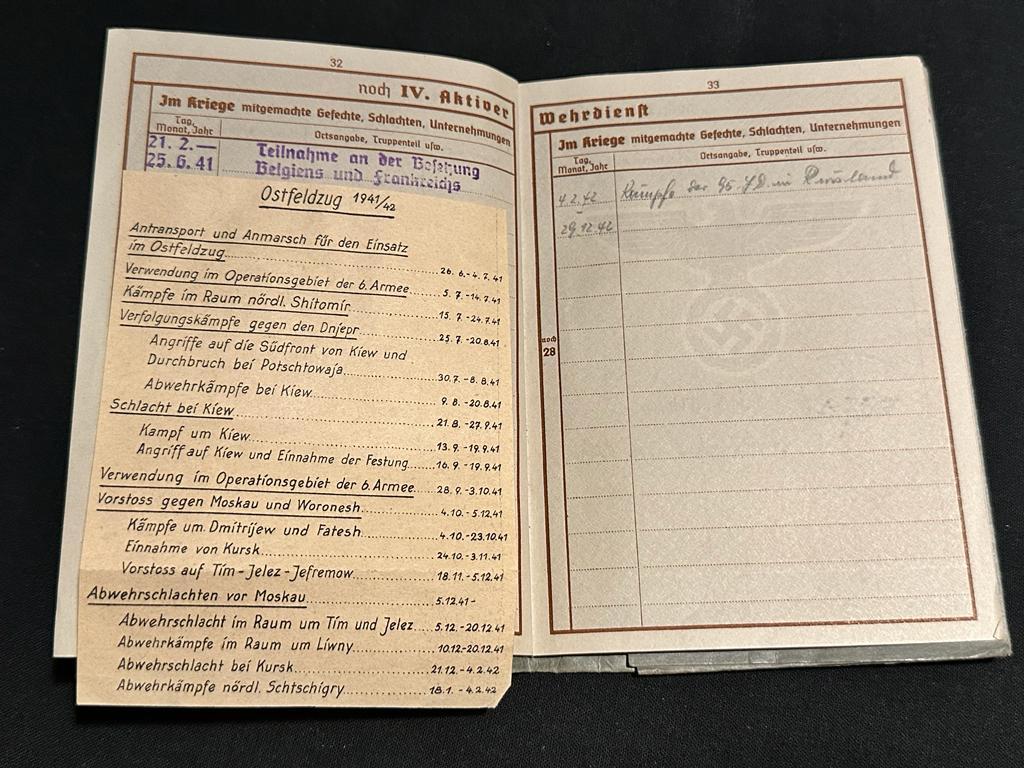 32
noch IV. Aktiver
Im Kriege mitgemachte Gefechte, Schlachten, Unternehmungen
Tag, Monat, Jahr
Ortsangabe, Truppenteil usw.
21. 2. —
25. 6. 41
Teilnahme an der Besetzung
Belgiens und Frankreichs
Ostfeldzug 1941/42
Antransport und Anmarsch für den Einsatz
im Ostfeldzug 26. 6. - 4. 7. 41
Verwendung im Operationsgebiet der 6. Armee 5. 7. - 14. 7. 41
Kämpfe im Raum nördl. Shitomir 15. 7. - 24. 7. 41
Verfolgungskämpfe gegen den Dnjepr 25. 7. - 20. 8. 41
Angriffe auf die Südfront von Kiew und
Durchbruch bei Potschtowaja 30. 7. - 8. 8. 41
Abwehrkämpfe bei Kiew 9. 8. - 20. 8. 41
Schlacht bei Kiew 21. 8. - 27. 9. 41
Kampf um Kiew 13. 9. - 19. 9. 41
Angriff auf Kiew und Einnahme der Festung 16. 9. - 19. 9. 41
Verwendung im Operationsgebiet der 6. Armee 28. 9. - 3. 10. 41
Vorstoss gegen Moskau und Woronesh 4. 10. - 5. 12. 41
Kämpfe um Dmitrijew und Fatesh 4. 10. - 23. 10. 41
Einnahme von Kursk 24. 10. - 3. 11. 41
Vorstoss auf Tim - Jelez - Jefremow 18. 11. - 5. 12. 41
Abwehrschlachten vor Moskau 5. 12. 41 -
Abwehrschlacht im Raum um Tim und Jelez 5. 12. - 20. 12. 41
Abwehrkämpfe im Raum um Liwny 10. 12. - 20. 12. 41
Abwehrschlacht bei Kursk 21. 12. - 4. 2. 42
Abwehrkämpfe nördl. Schtschigry 18. 1. - 4. 2. 42
33
Wehrdienst
Im Kriege mitgemachte Gefechte, Schlachten, Unternehmungen
Tag, Monat, Jahr
Ortsangabe, Truppenteil usw.
4. 2. 42 Kämpfe der 95. I.D. in Russland
–
29. 12. 42
noch
28